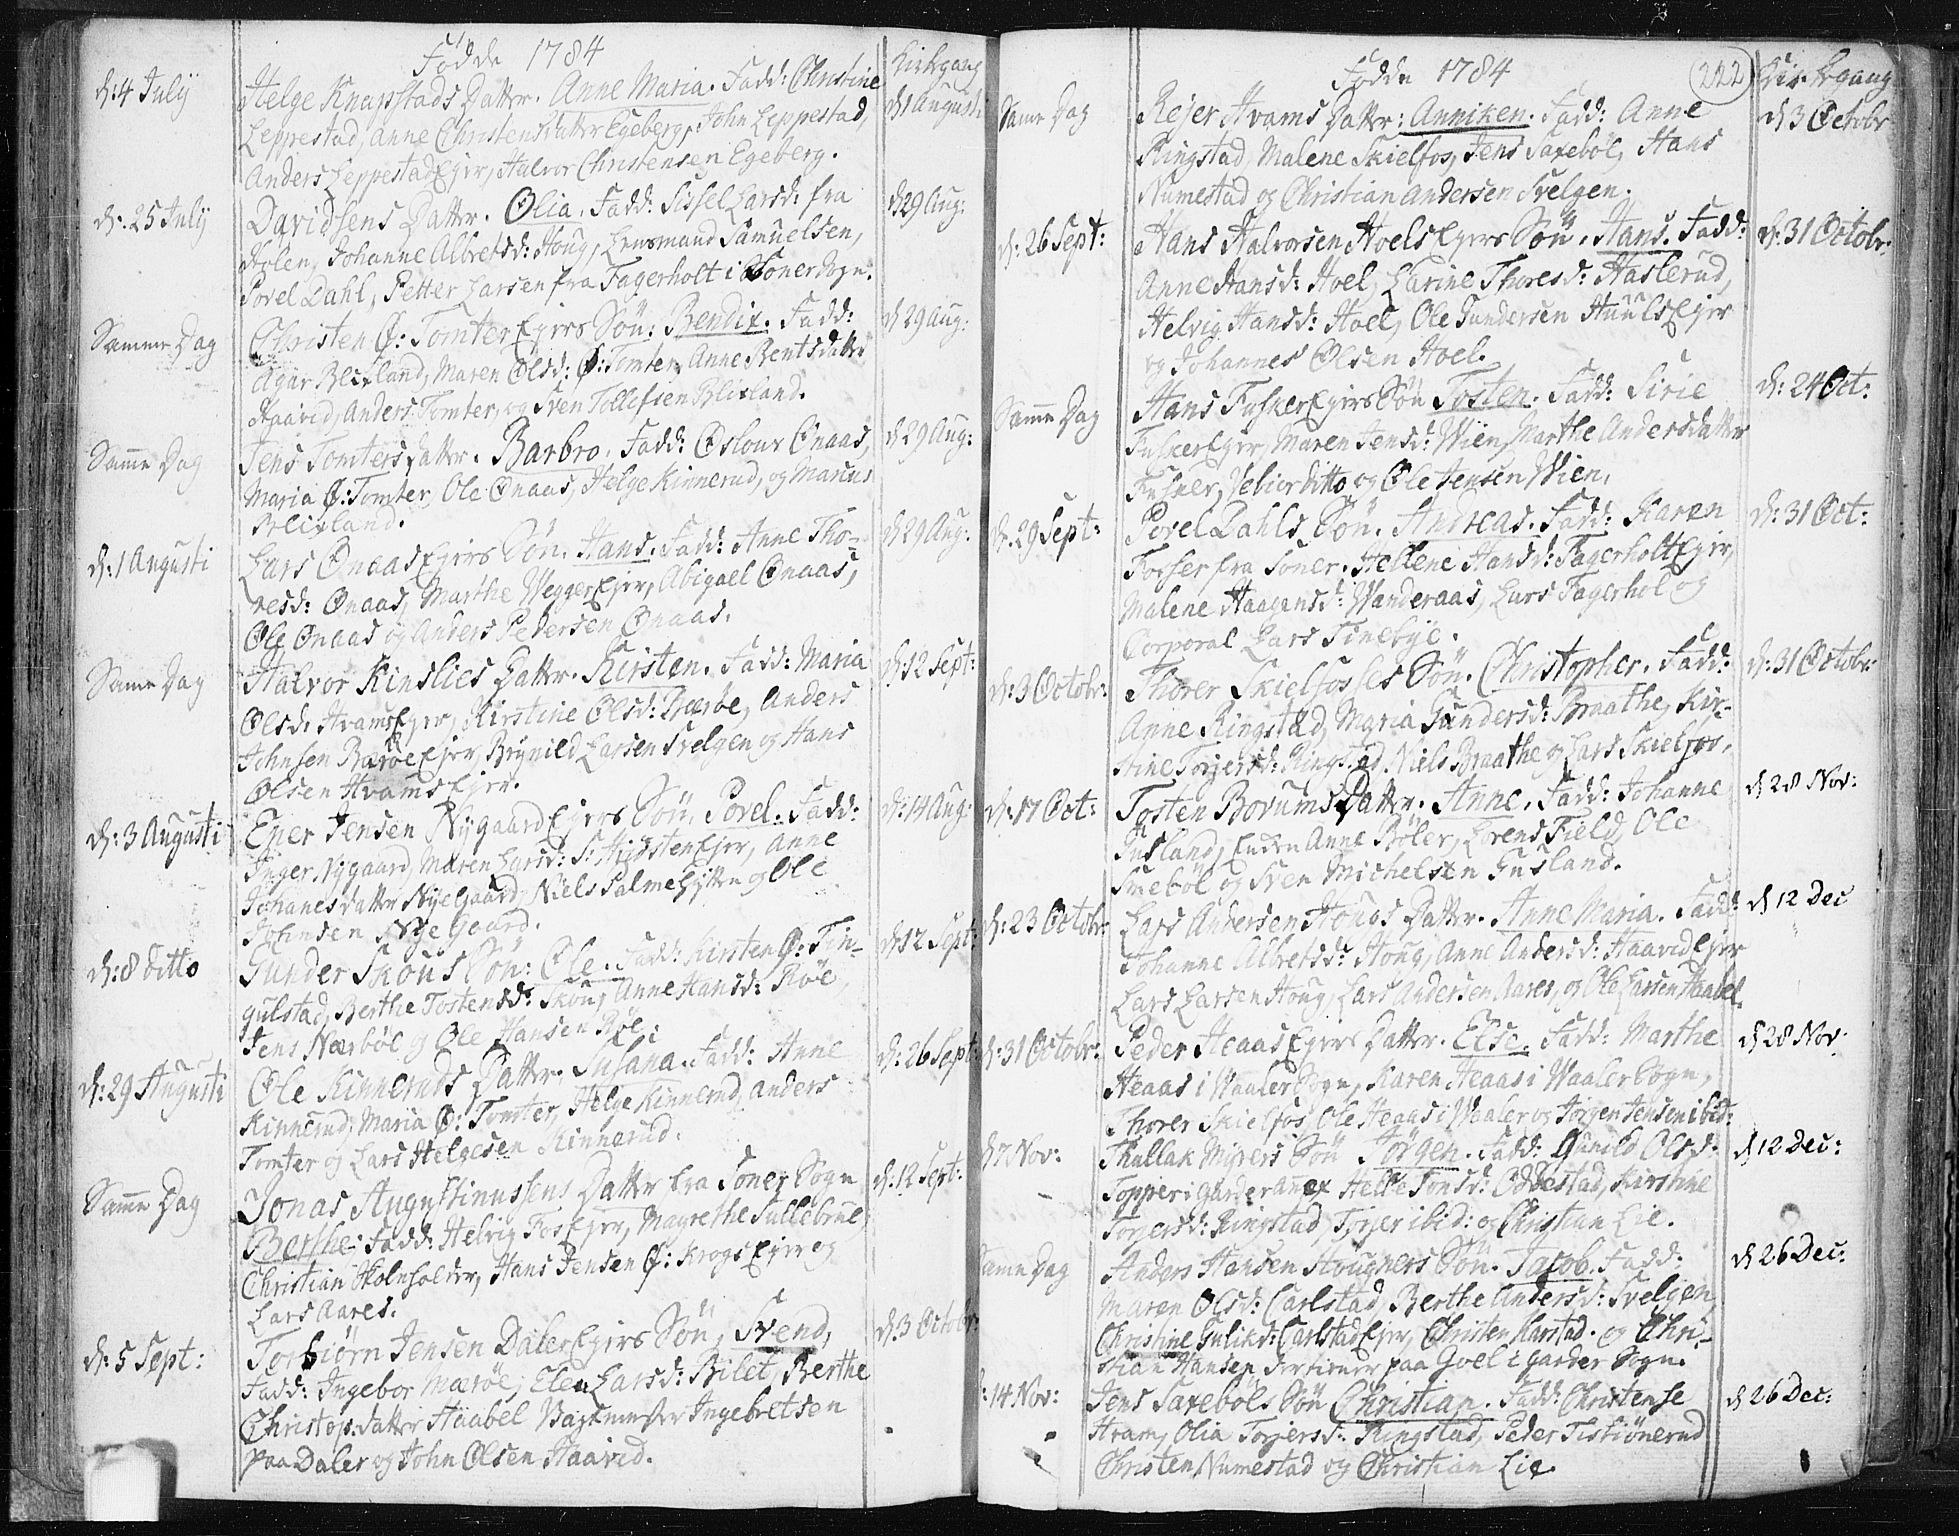 Fødde 1784
Kirkgang
d: 4 July
Helge Knapstads Datter. Anne Maria. Fadd: Christine
d 1 Augusti
Leppestad, Anne Christensdatter Egeberg, John Leppestad,
Anders Leppestad Ejer, Halvor Christensen Egeberg.
d: 25 July
Davidsens Datter. Olia. Fadd: Sissel Larsd: fra
d 29 Aug:
Holen, Johanne Albretsd: Houg, Lensmand Samuelsen,
Povel Dahl, Petter Larsen fra Fagerholt i Soner Sogn.
Samme Dag
Christen Ø: Tomter Ejers Søn: Bendix. Fadd:
d 29 Aug:
Agar Blixland, Maren Olsd: Ø: Tomter, Anne Bentsdatter
Haavid, Anders Tomter, og Sven Tollefsen Blixland.
Samme Dag
Jens Tomters Datter. Barbro. Fadd: Oslour Onaas,
d 29 Aug:
Maria Ø: Tomter, Ole Onaas, Helge Kinnerud, og Marcus
Blixland.
d: 1 Augusti
Lars Onaas Ejers Søn. Hans. Fadd: Anne Tho-
d 29 Aug:
resd: Onaas, Marthe Vegger Ejer, Abigael Onaas,
Ole Onaas og Anders Pedersen Onaas.
Samme Dag
Halvor Kinslies Datter. Kirsten. Fadd: Maria
d: 12 Sept:
Olsd: Hvams Ejer, Kirstine Olsd: Bærøe, Anders
Johnsen Bærøe Ejer, Brynild Larsen Svelgen og Hans
Olsen Hvams Ejer.
d: 3 Augusti
Ejer Jensen Nygaard Ejers Søn. Povel. Fadd:
d: 14 Aug:
Inger Nygaard, Maren Larsd: S: Huusten Ejer, Anne
Johanesdatter Nye Gaard, Niels Salmehytten og Ole
Johnsen Nye Gaard.
d: 8 ditto
Gunder Skous Søn: Ole. Fadd: Kirsten Ø: Fin-
d 12 Sept:
gulstad, Berthe Tostensd: Skou, Anne Hansd: Røe,
Jens Nærbøl og Ole Hansen Røe.
d: 29 Augusti
Ole Kinneruds Datter. Susana. Fadd: Anne
d: 26 Sept:
Kinnerud, Maria Ø: Tomter, Helge Kinnerud, Anders
Tomter og Lars Helgesen Kinnerud.
Samme Dag
Jonas Augustinussens Datter fra Soner Sogn
d: 12 Sept:
Berthe. Fadd: Helvig Fos Ejer, Magrethe Sullebrue
Christian Skoleholder, Hans Jensen Ø: Krogs Ejer og
Lars Aares.
d: 5 Sept:
Torbiørn Jensen Daler Ejers Søn, Svend,
d: 3 Octobr:
Fadd: Ingebor Mærøe, Elen Larsd: Bilet, Berthe
Christop. datter Haabel Ingebretsen
paa Daler og John Olsen Haavid.
Fødde 1784
222
Kirkgang
Samme Dag
Rejer Hvams Datter: Anniken. Fadd: Anne
d 3 Octobr
Ringstad, Malene Skielfos, Jens Saxebøl, Hans
Numestad og Christian Andersen Svelgen.
d: 26 Sept:
Hans Halvorsen Hoels Ejers Søn. Hans. Fadd:
d: 31 Octobr:
Anne Hansd: Hoel, Karine Thoresd: Haslerud,
Helvig Hansd: Hoel, Ole Gundersen Huuls Ejer
og Johannes Olsen Hoel.
Samme Dag
Hans Fusker Ejers Søn Tosten. Fadd: Sirie
d: 24 Oct:
Fusker Ejer, Maren Jensd: Wien, Marthe Andersdatter
Fusker, ditto og Ole Jensen Wien.
d: 29 Sept:
Povel Dahls Søn. Andreas. Fadd: Karen
d: 31 Oct:
Fosser fra Soner. Hellene Hansd: Fagerholt Ejer,
Malene Haagensd: Wanderaas, Lars Fagerhol og
Corporal Lars Finebye.
d: 3 Octobr:
Thorer Skielfosses Søn. Christopher. Fadd:
d: 31 Octobr:
Anne Ringstad, Maria Gundersd: Braathe, Kir-
stine Torjersd: Ringstad, Niels Braathe og Lars Skielfos.
d: 17 Oct:
Tosten Borums Datter. Anne. Fadd: Johanne
d 28 Nov:
Gusland, Enken Anne Bøler, Lorens Field, Ole
Smebøl og Sven Michelsen Gusland.
d: 23 Octobr:
Lars Andersen Hougs Datter. Anne Maria. Fadd:
d 12 Dec
Johanne Albretsd: Houg, Anne Andersd: Haavid Ejer
Lars Larsen Houg, Lars Andersen Aares, og Ole Larsen Haabel.
d: 31 Octobr:
Peder Heaas Ejers Datter. Else. Fadd: Marthe
d 28 Nov:
Heaas i Waaler Sogn, Karen Heaas i Waaler Sogn,
Thorer Skielfos, Ole Heaas i Waaler og Jørgen Jensen ibid:
d 7 Nov:
Thallak Myrers Søn Jørgen. Fadd: Gunild Olsd:
d 12 Dec:
Topper i Garder Annex Helle Tonsd: Oddestad, Kirstine
Torjersd: Ringstad, Torjer ibid: og Christian Lie.
Samme Dag
Anders Hansen Hougners Søn. Jacob. Fadd:
d 26 Dec:
Maren Olsd: Carlstad, Berthe Andersd: Svelgen,
Christine Gulikd: Carlstad Ejer, Christen Harstad. og Chri-
stian Hansen paa Goel i Garder Sogn.
d: 14 Nov:
Jens Saxebøls Søn Christian. Fadd: Christense
d 26 Dec:
Hvam, Olia Torjersd: Ringstad, Peder Tistiønerud
Christen Numestad og Christian Lie